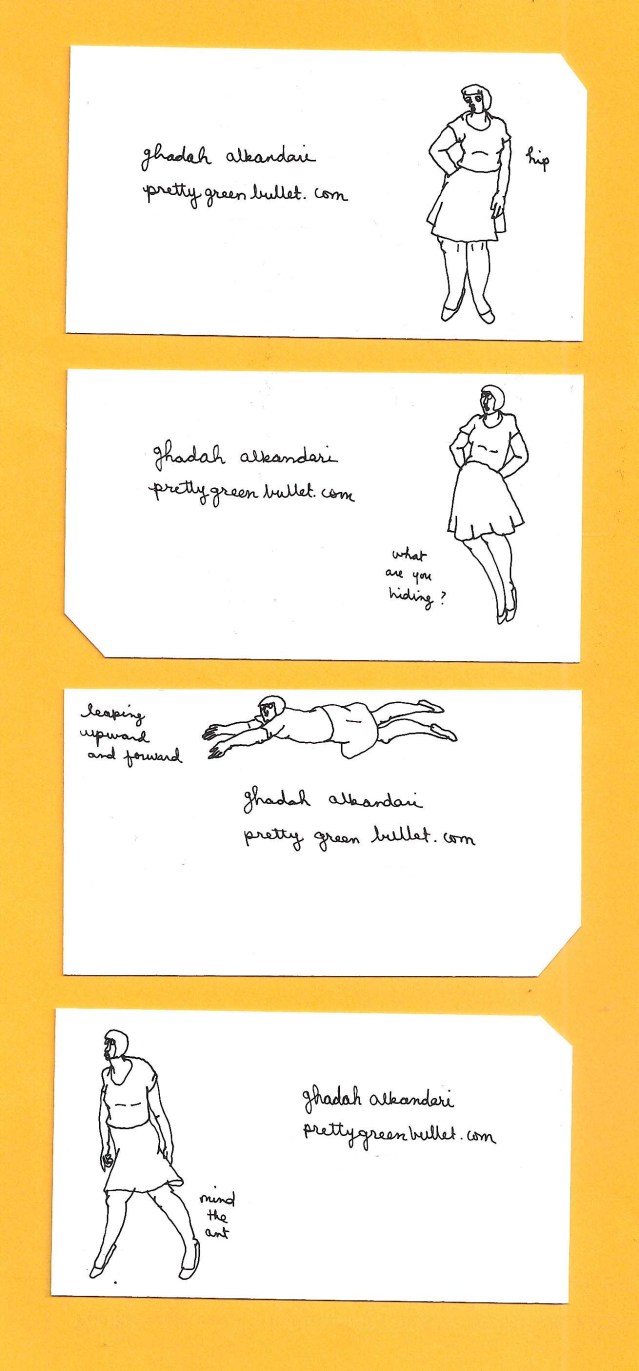 ghadah alkandari
prettygreenbullet.com
hip
ghadah alkandari
prettygreenbullet.com
what
are you
hiding?
leaping
upward
and forward
ghadah alkandari
pretty green bullet.com
ghadah alkandari
prettygreenbullet.com
mind
the
ant